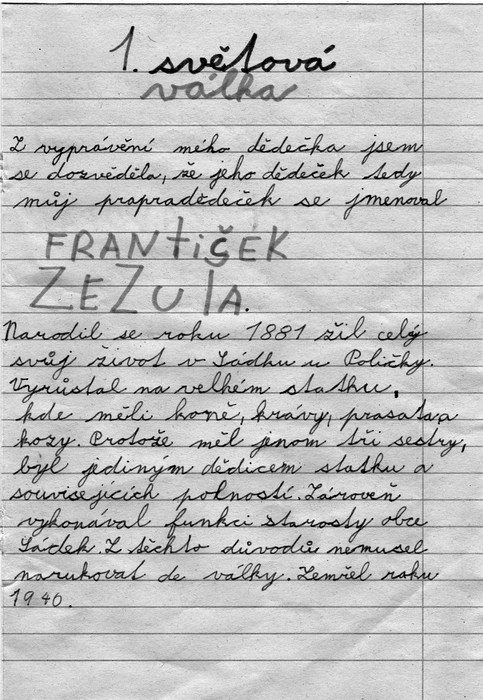 1. světová
válka
Z vyprávění mého dědečka jsem
se dozvěděla, že jeho dědeček tedy
můj prapradědeček se jmenoval
FRANTIŠEK
ZEZULA.
Narodil se roku 1881 žil celý
svůj život v Sádku u Poličky.
Vyrůstal na velkém statku,
kde měli koně, krávy, prasata a
kozy. Protože měl jenom tři sestry,
byl jediným dědicem statku a
souvisejících polností. Zároveň
vykonával funkci starosty obce
Sádek. Z těchto důvodů nemusel
narukovat do války. Zemřel roku
1940.